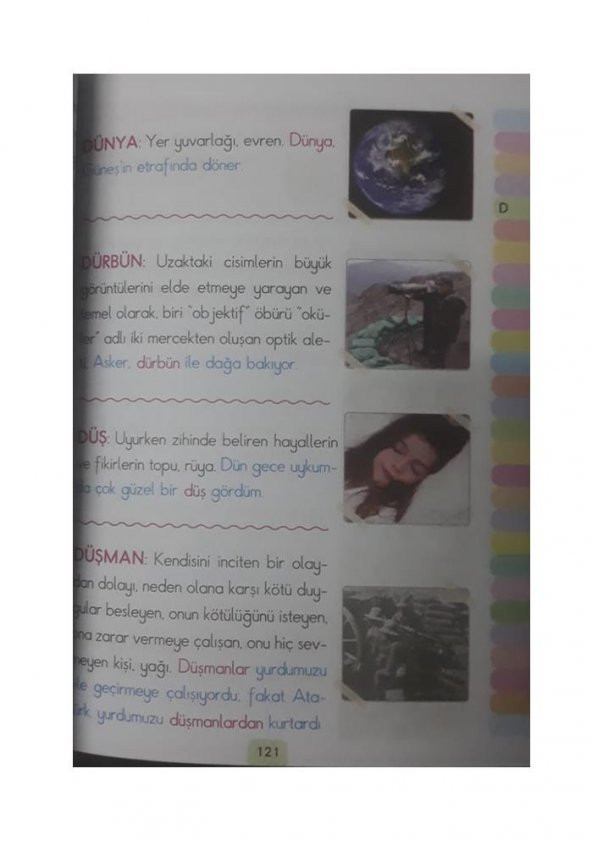 DÜNYA: Yer yuvarlağı, evren. Dünya,
Güneş'in etrafında döner.
D
DÜRBÜN: Uzaktaki cisimlerin büyük
görüntülerini elde etmeye yarayan ve
temel olarak, biri "objektif" öbürü "okü-
ler" adlı iki mercekten oluşan optik ale-
ti. Asker, dürbün ile dağa bakıyor.
DÜŞ: Uyurken zihinde beliren hayallerin
ve fikirlerin topu, rüya. Dün gece uykum-
da çok güzel bir düş gördüm.
DÜŞMAN: Kendisini inciten bir olay-
dan dolayı, neden olana karşı kötü duy-
gular besleyen, onun kötülüğünü isteyen,
ona zarar vermeye çalışan, onu hiç sev-
meyen kişi, yağı. Düşmanlar yurdumuzu
ele geçirmeye çalışıyordu; fakat Ata-
türk yurdumuzu düşmanlardan kurtardı.
121